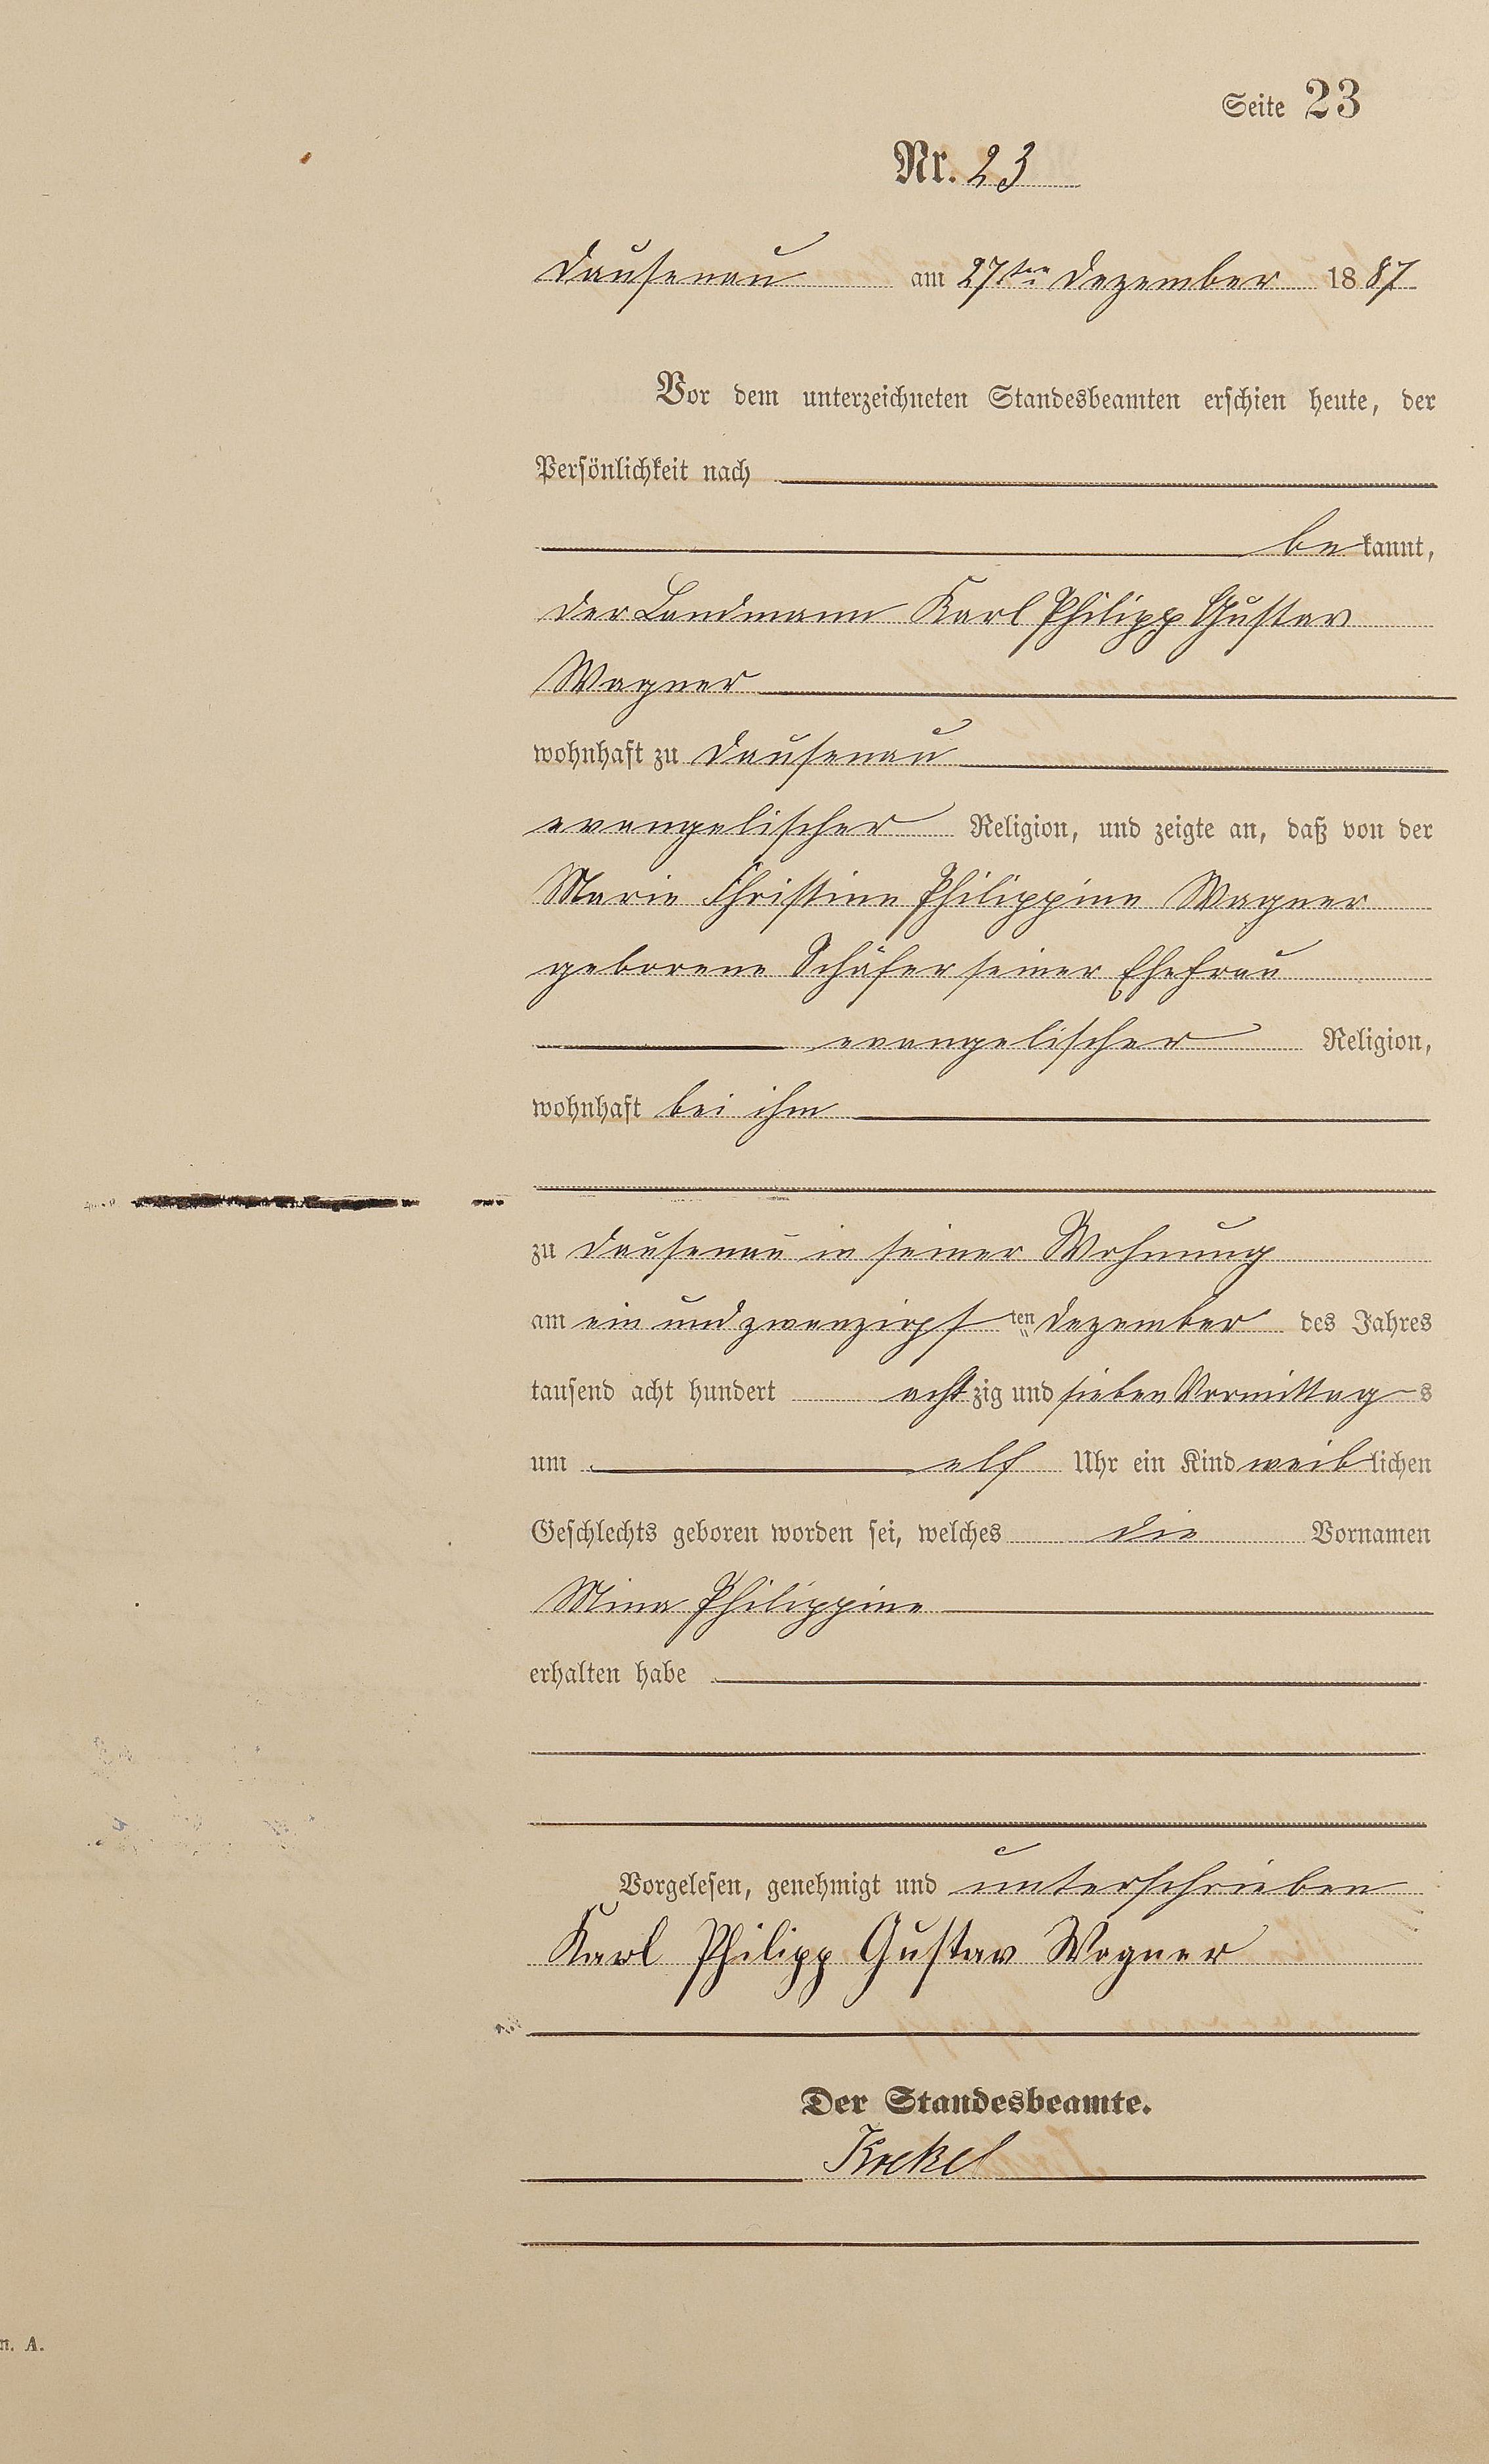 Seite 23
Nr. 23
Dausenau am 27ten Dezember 1887
Vor dem unterzeichneten Standesbeamten erschien heute, der
Persönlichkeit nach
bekannt,
der Landmann Karl Philipp Gustav
Wagner
wohnhaft zu Dausenau
evangelischer Religion, und zeigte an, daß von der
Marie Christine Philippine Wagner
geborene Schäfer seiner Ehefrau
evangelischer Religion,
wohnhaft bei ihm
zu Dausenau in seiner Wohnung
am ein und zwanzigsten Dezember des Jahres
tausend acht hundert achtzig und sieben Vormittags
um elf Uhr ein Kind weiblichen
Geschlechts geboren worden sei, welches die Vornamen
Mina Philippine
erhalten habe
Vorgelesen, genehmigt und unterschrieben
Karl Philipp Gustav Wagner
Der Standesbeamte.
n. A.